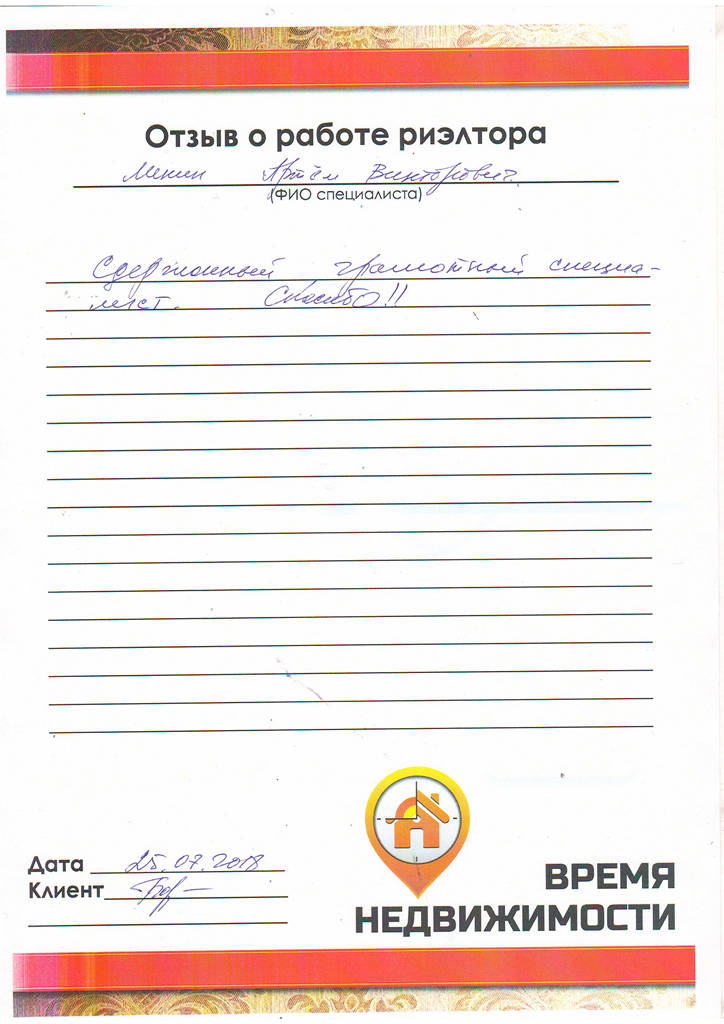 Отзыв о работе риэлтора
Менин Артём Викторович
(ФИО специалиста)
Сдержанный грамотный специа-
лист. Спасибо!!
Дата 25.07.2018
Клиент
ВРЕМЯ
НЕДВИЖИМОСТИ